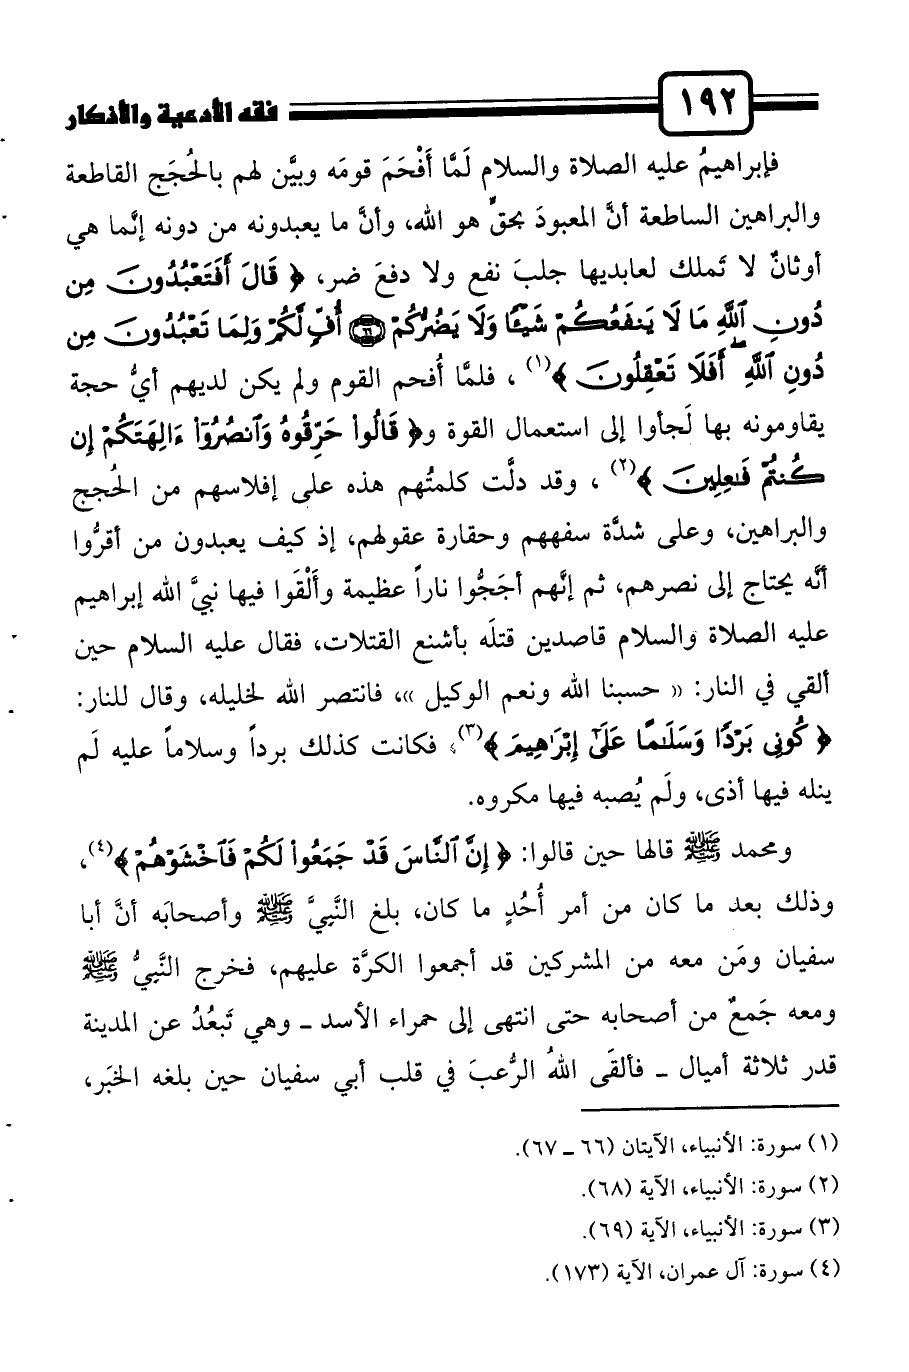 ١٩٢ فقه الأدعية والأذكار
فإبراهيمُ عليه الصلاة والسلام لَمَّا أَفْحَمَ قومَه وبيَّن لهم بالحُجَج القاطعة
والبراهين الساطعة أنَّ المعبودَ بحقٍّ هو الله، وأنَّ ما يعبدونه من دونه إنَّما هي
أوثانٌ لا تَملك لعابديها جلبَ نفع ولا دفعَ ضر، ﴿ قَالَ أَفَتَعْبُدُونَ مِن
دُونِ ٱللَّهِ مَا لَا يَنفَعُكُمْ شَيْـًٔا وَلَا يَضُرُّكُمْ ۝٦٦ أُفٍّ لَّكُمْ وَلِمَا تَعْبُدُونَ مِن
دُونِ ٱللَّهِ ۖ أَفَلَا تَعْقِلُونَ ﴾(١)، فلمَّا أُفحم القوم ولم يكن لديهم أيُّ حجة
يقاومونه بها لَجأوا إلى استعمال القوة و﴿ قَالُوا۟ حَرِّقُوهُ وَٱنصُرُوٓا۟ ءَالِهَتَكُمْ إِن
كُنتُمْ فَـٰعِلِينَ ﴾(٢)، وقد دلَّت كلمتُهم هذه على إفلاسهم من الحُجج
والبراهين، وعلى شدَّة سفههم وحقارة عقولهم، إذ كيف يعبدون من أقرُّوا
أنَّه يحتاج إلى نصرهم، ثم إنَّهم أجَجُّوا ناراً عظيمة وأَلْقَوا فيها نبيَّ الله إبراهيم
عليه الصلاة والسلام قاصدين قتلَه بأشنع القتلات، فقال عليه السلام حين
ألقي في النار: « حسبنا الله ونعم الوكيل »، فانتصر الله لخليله، وقال للنار:
﴿ كُونِى بَرْدًا وَسَلَـٰمًا عَلَىٰٓ إِبْرَٰهِيمَ ﴾(٣)، فكانت كذلك برداً وسلاماً عليه لَم
ينله فيها أذى، ولَم يُصبه فيها مكروه.
ومحمد ﷺ قالها حين قالوا: ﴿ إِنَّ ٱلنَّاسَ قَدْ جَمَعُوا۟ لَكُمْ فَٱخْشَوْهُمْ ﴾(٤)،
وذلك بعد ما كان من أمر أُحُدٍ ما كان، بلغ النَّبيَّ ﷺ وأصحابَه أنَّ أبا
سفيان ومَن معه من المشركين قد أجمعوا الكرَّة عليهم، فخرج النَّبيُّ ﷺ
ومعه جَمعٌ من أصحابه حتى انتهى إلى حمراء الأسد ــ وهي تَبعُدُ عن المدينة
قدر ثلاثة أميال ــ فألقَى اللهُ الرُّعبَ في قلب أبي سفيان حين بلغه الخبَر،
(١) سورة: الأنبياء، الآيتان (٦٦ ــ ٦٧).
(٢) سورة: الأنبياء، الآية (٦٨).
(٣) سورة: الأنبياء، الآية (٦٩).
(٤) سورة: آل عمران، الآية (١٧٣).